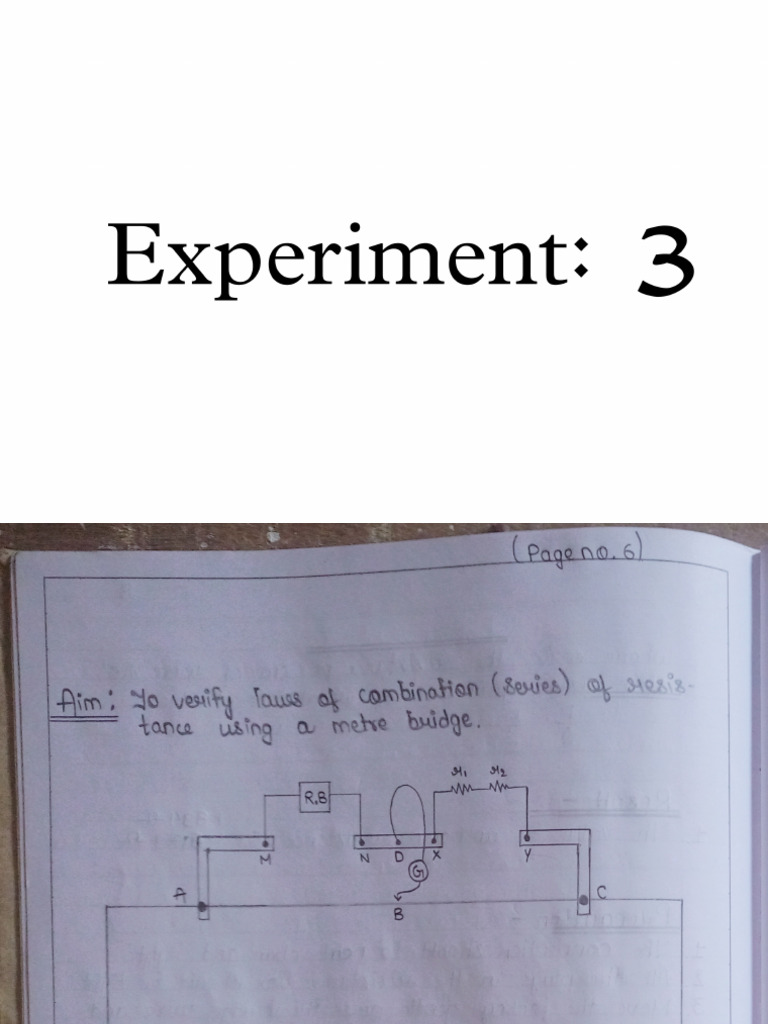 Experiment: 3
(Page no. 6)
Aim: To verify laws of combination (series) of resis-
tance using a metre bridge.
r1 r2
R.B
M N D X Y
G
A C
B